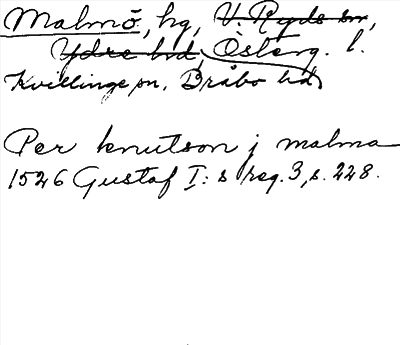 Malmö, hg, V. Ryds sn,
Ydre hd, Österg. l.
Kvillinge sn, Bråbo hd
Per knutson j malma
1526 Gustaf I:s reg. 3, s. 228.